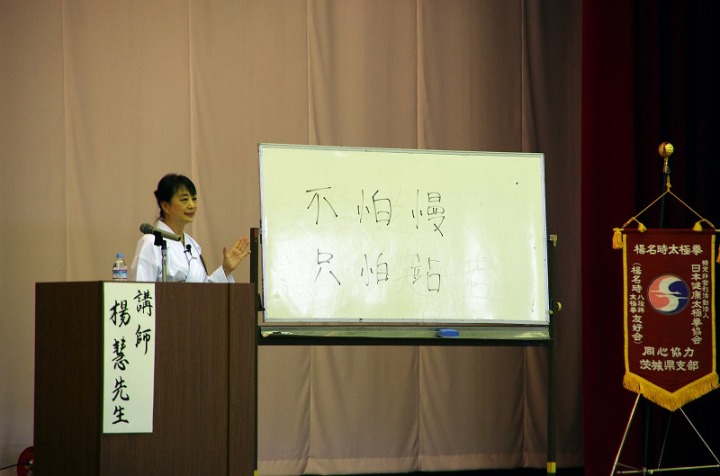 不怕慢
只怕站
講師
楊慧先生
楊名時太極拳
特定非営利活動法人
日本健康太極拳協会
(楊名時八段錦太極拳友好会)
同心協力
茨城県支部